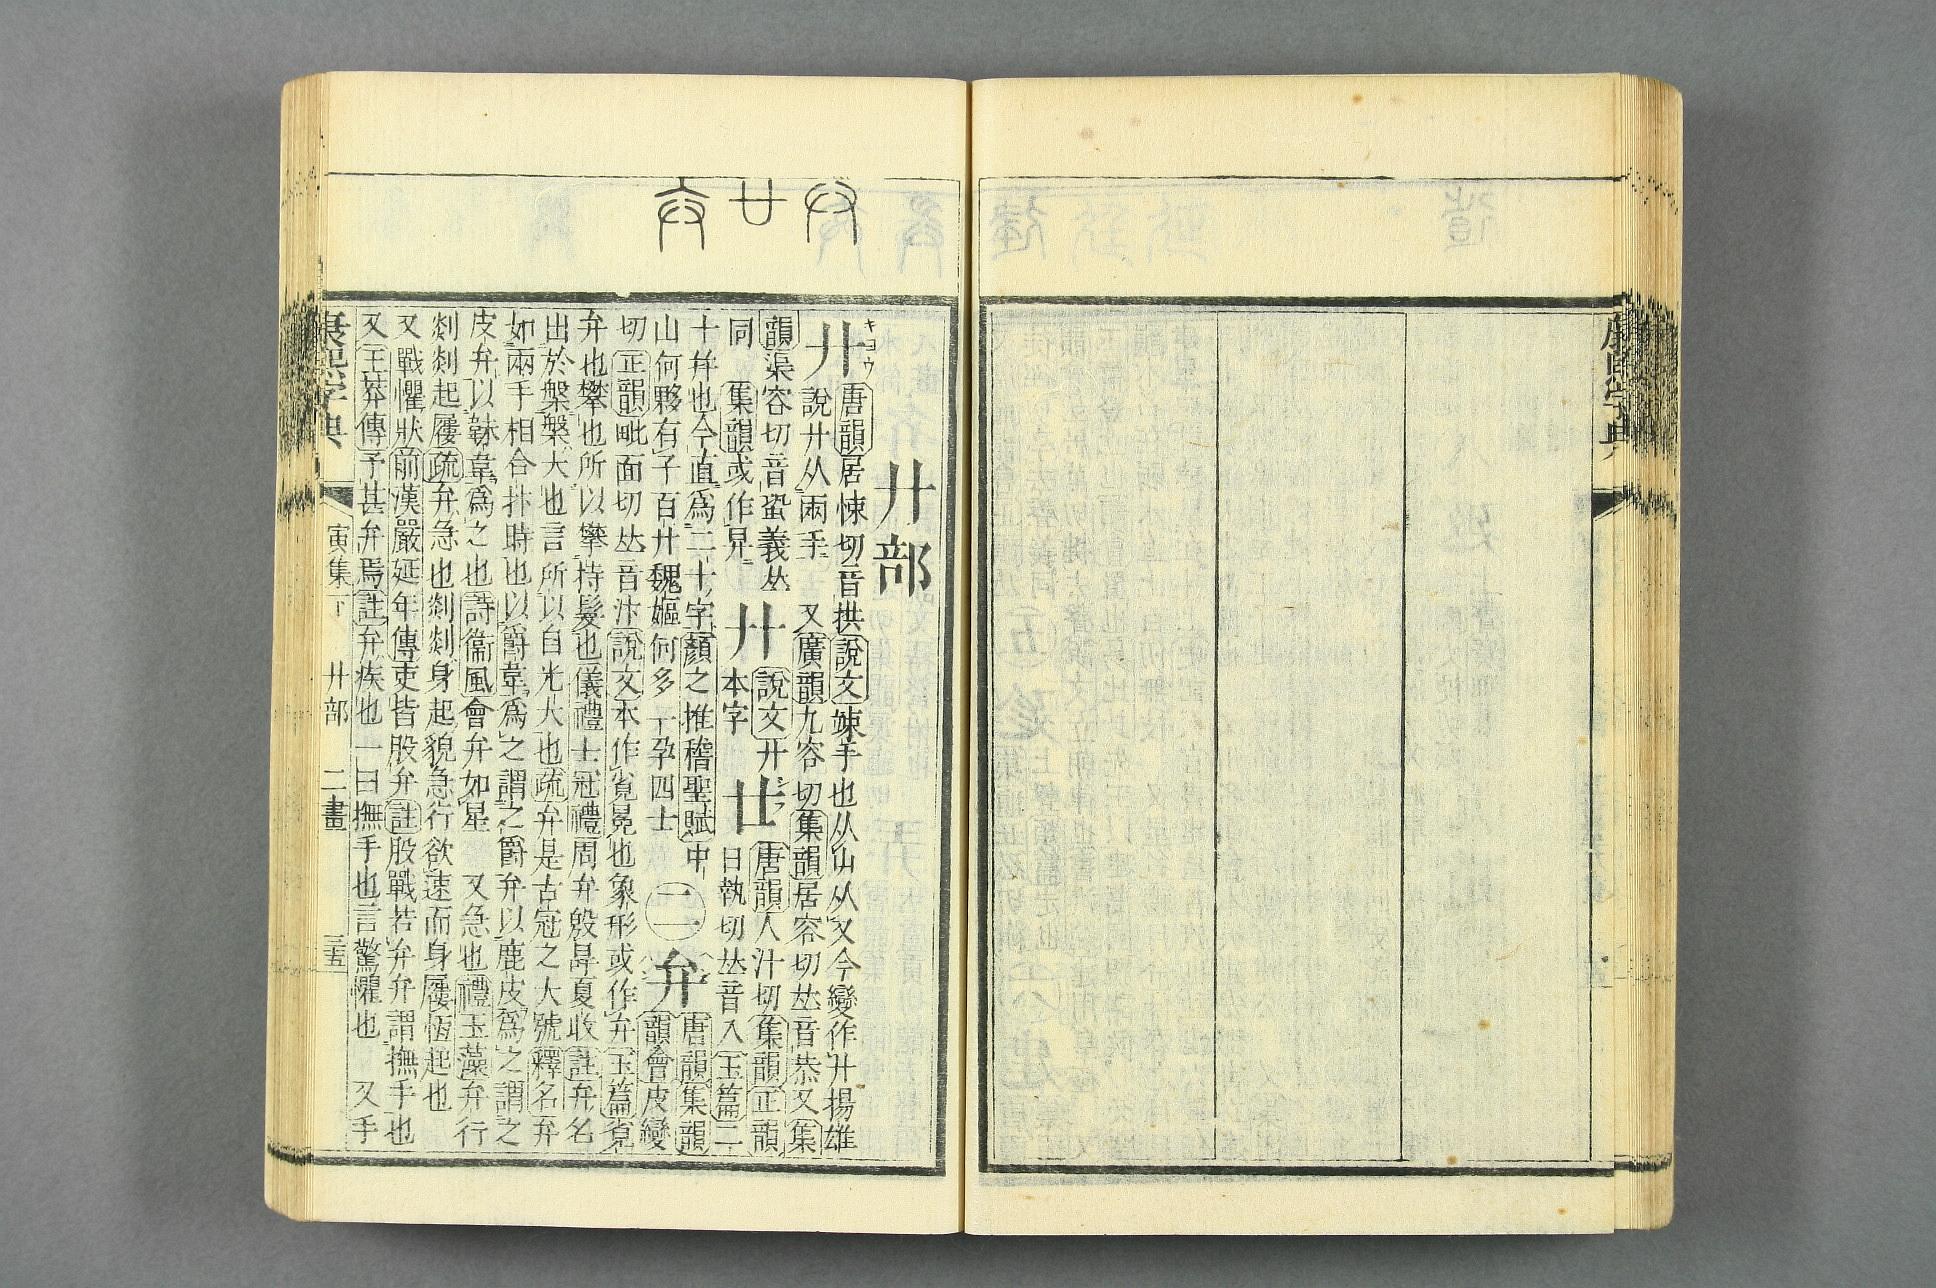 廾部
廾
キヨウ
唐韻居悚切音拱說文竦手也从𠂇从又今變作廾揚雄
說廾从兩手 又廣韻九容切集韻居容切𠀤音恭又集
韻渠容切音蛩義𠀤
同 集韻或作
廾
說文廾
本字
廿
唐韻人汁切集韻正韻
日執切𠀤音入玉篇二
十幷也今直爲二十字顏之推稽聖賦中
山何夥有子百廿魏嫗何多一孕四士
二
弁
唐韻集韻
韻會皮變
切正韻毗面切𠀤音汴說文本作覍冕也象形或作弁玉篇覍
弁也攀也所以攀持髮也儀禮士冠禮周弁殷冔夏收註弁名
出於槃槃大也言所以自光大也疏弁是古冠之大號釋名弁
如兩手相合抃時也以爵韋爲之謂之爵弁以鹿皮爲之謂之
皮弁以韎韋爲之也詩衞風會弁如星 又急也禮玉藻弁行
剡剡起屨疏弁急也剡剡身起貌急行欲速而身屨恆起也
又戰懼狀前漢嚴延年傳吏皆股弁註股戰若弁弁謂撫手也
又王莽傳予甚弁焉註弁疾也一曰撫手也言驚懼也 又手
康熙字典 寅集下 廾部 二畫 三五